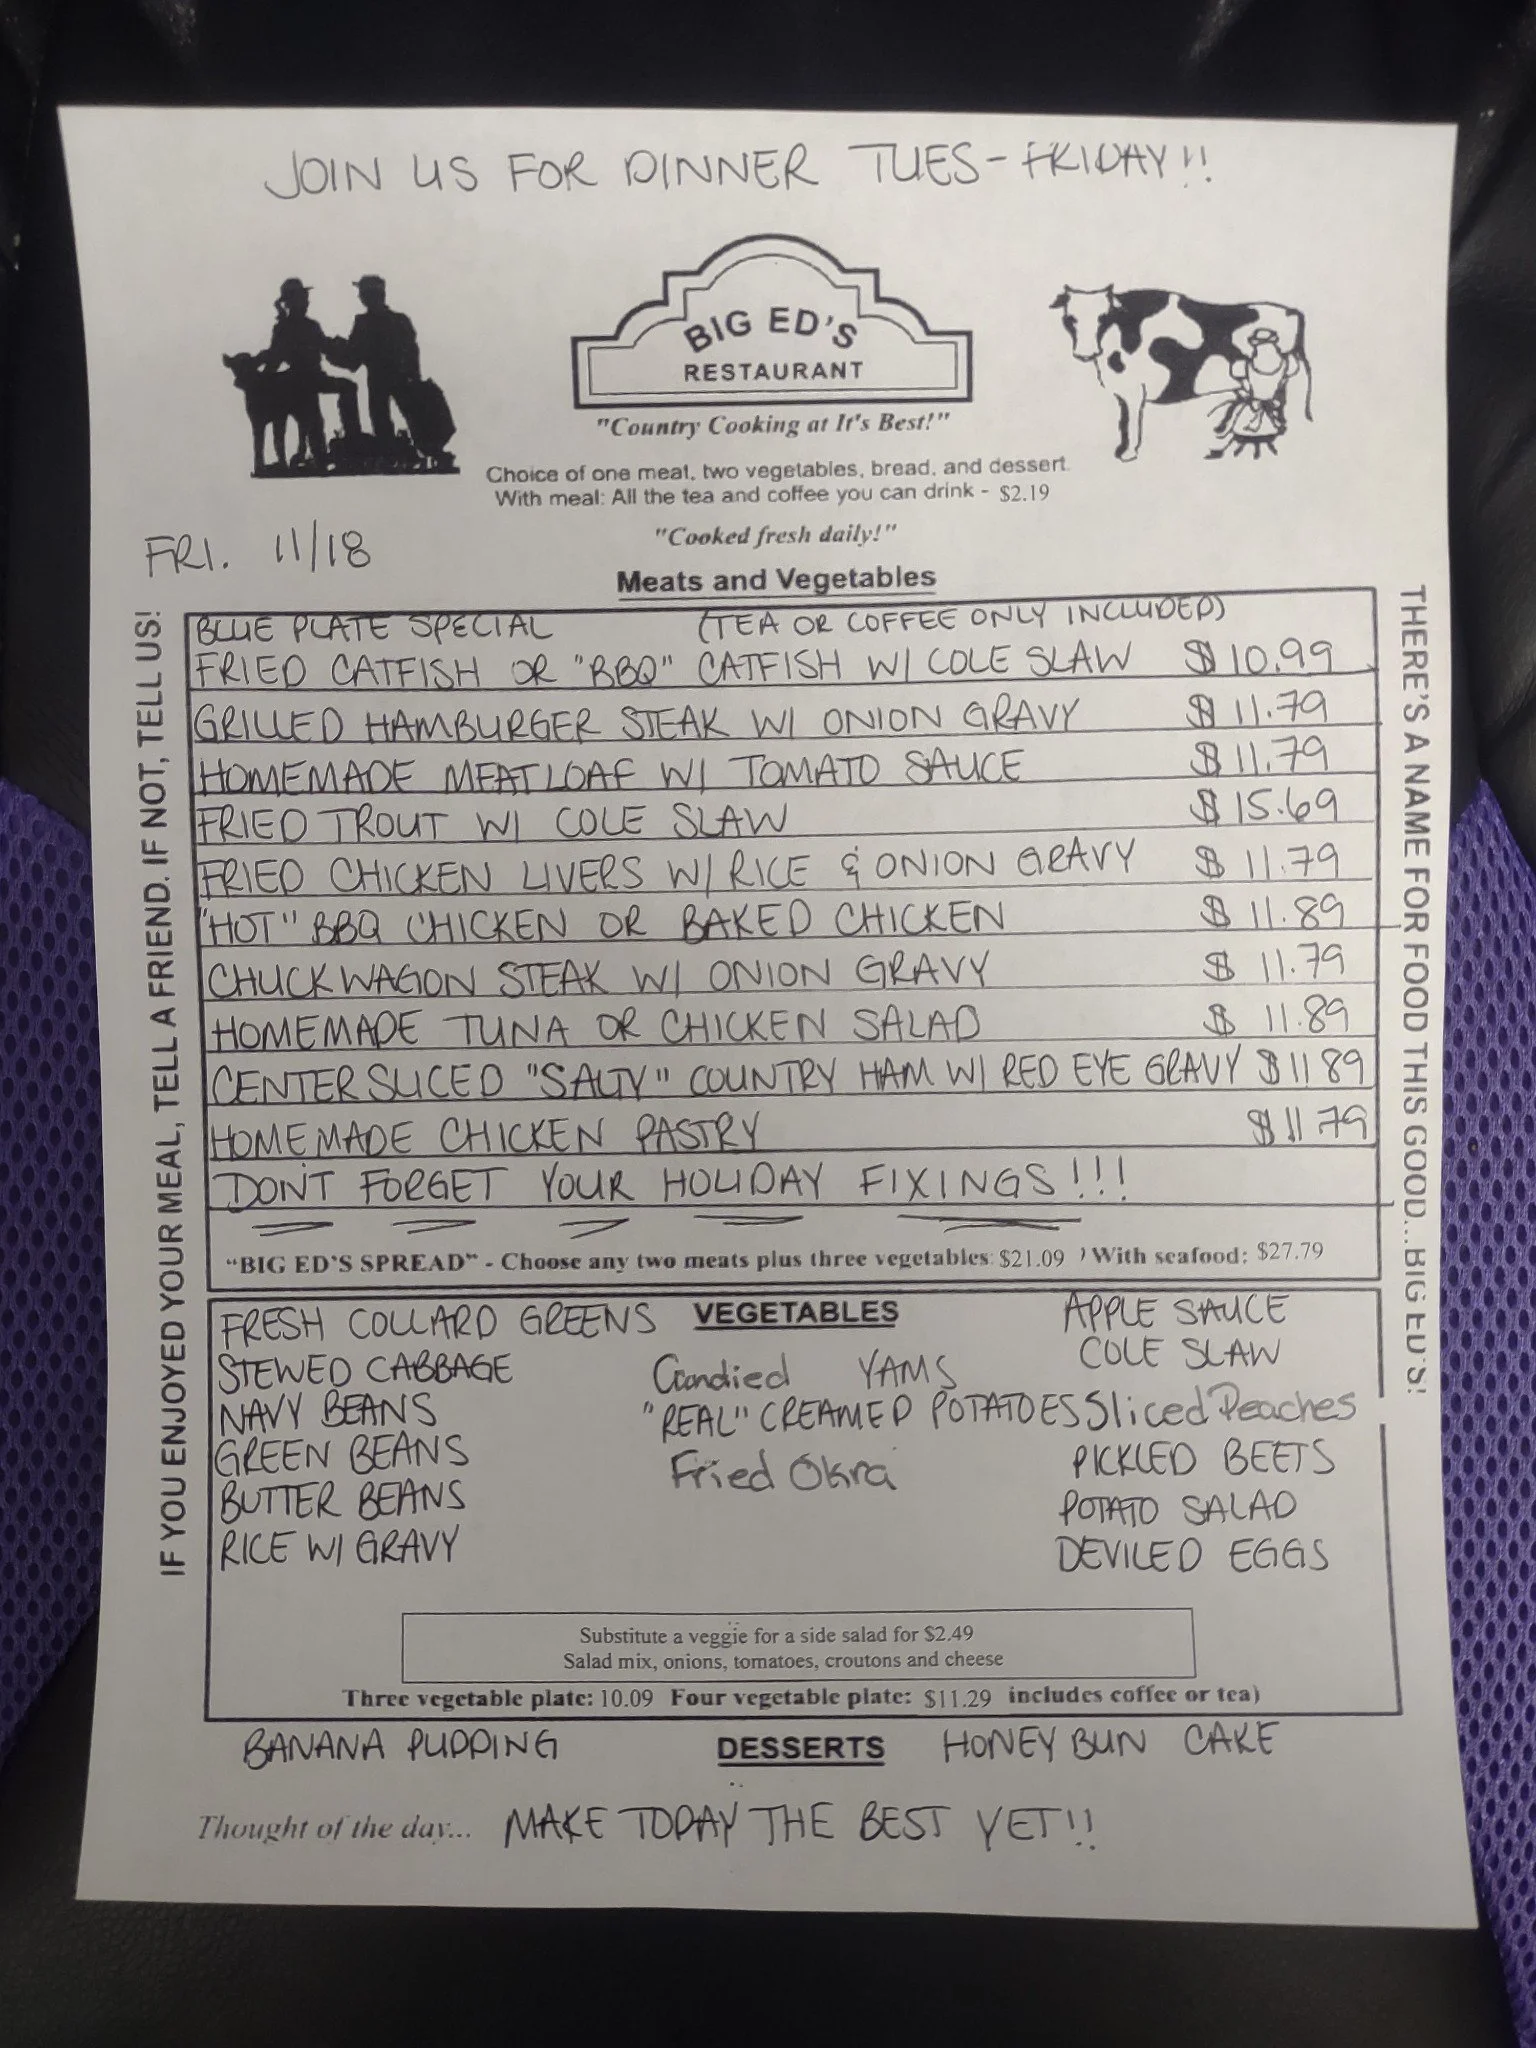 JOIN US FOR DINNER TUES-FRIDAY!!
BIG ED'S
RESTAURANT
"Country Cooking at It's Best!"
Choice of one meat, two vegetables, bread, and dessert.
With meal: All the tea and coffee you can drink - $2.19
"Cooked fresh daily!"
FRI. 11/18
Meats and Vegetables
IF YOU ENJOYED YOUR MEAL, TELL A FRIEND. IF NOT, TELL US!
BLUE PLATE SPECIAL (TEA OR COFFEE ONLY INCLUDED)
FRIED CATFISH OR "BBQ" CATFISH W/ COLE SLAW $10.99
GRILLED HAMBURGER STEAK W/ ONION GRAVY $11.79
HOMEMADE MEATLOAF W/ TOMATO SAUCE $11.79
FRIED TROUT W/ COLE SLAW $15.69
FRIED CHICKEN LIVERS W/ RICE & ONION GRAVY $11.79
"HOT" BBQ CHICKEN OR BAKED CHICKEN $11.89
CHUCKWAGON STEAK W/ ONION GRAVY $11.79
HOMEMADE TUNA OR CHICKEN SALAD $11.89
CENTER SLICED "SALTY" COUNTRY HAM W/ RED EYE GRAVY $11 89
HOMEMADE CHICKEN PASTRY $11 79
DON'T FORGET YOUR HOLIDAY FIXINGS!!!
"BIG ED'S SPREAD" - Choose any two meats plus three vegetables: $21.09 ) With seafood: $27.79
THERE'S A NAME FOR FOOD THIS GOOD...BIG ED'S!
VEGETABLES
FRESH COLLARD GREENS
STEWED CABBAGE
NAVY BEANS
GREEN BEANS
BUTTER BEANS
RICE W/ GRAVY
Candied YAMS
"REAL" CREAMED POTATOES
Fried Okra
APPLE SAUCE
COLE SLAW
Sliced Peaches
PICKLED BEETS
POTATO SALAD
DEVILED EGGS
Substitute a veggie for a side salad for $2.49
Salad mix, onions, tomatoes, croutons and cheese
Three vegetable plate: 10.09 Four vegetable plate: $11.29 includes coffee or tea)
BANANA PUDDING DESSERTS HONEY BUN CAKE
Thought of the day... MAKE TODAY THE BEST YET!!